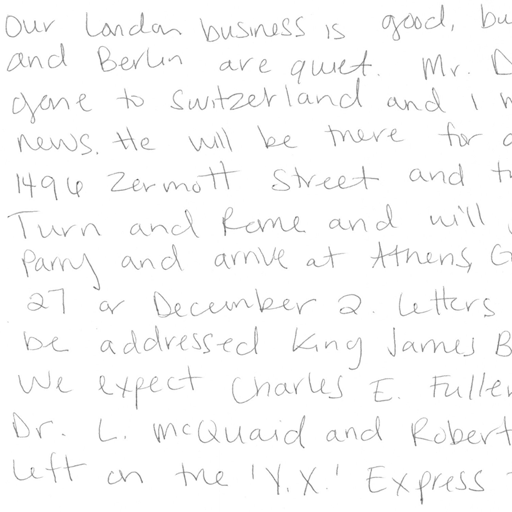 Our London business is good, bu
and Berlin are quiet. Mr. D
gone to Switzerland and I h
news. He will be there for a
1496 Zermott Street and t
Turn and Rome and will
Parry and arrive at Athens, G
27 or December 2. Letters
be addressed King James B
We expect Charles E. Fuller
Dr. L. McQuaid and Robert
left on the 'Y.X.' Express